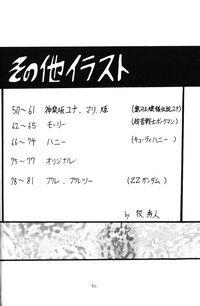 その他イラスト
57～61 神楽坂ユナ、マリ、姫 (銀河お嬢様伝説ユナ)
62～65 モーリー (超音戦士ボーグマン)
66～74 ハニー (キューティハニー)
75～77 オリジナル
78～81 プル、プルツー (ZZガンダム)
by 牧 秀人